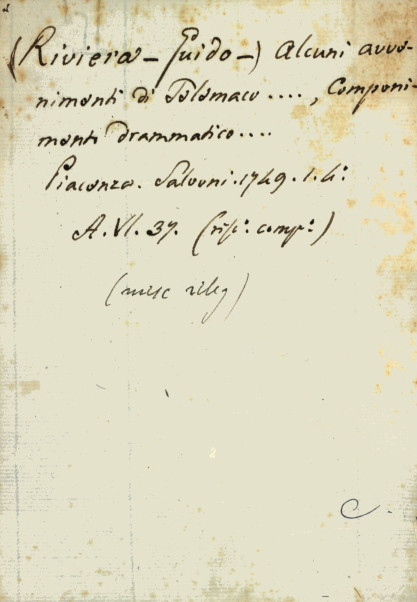 (Riviera - Guido -) Alcuni avve-
nimenti di Telemaco ...., Componi-
mento drammatico ....
Piacenza. Salvoni. 1749. 1. 4º.
A. VI. 37. (risp. comp.)
(misc rileg)
C.